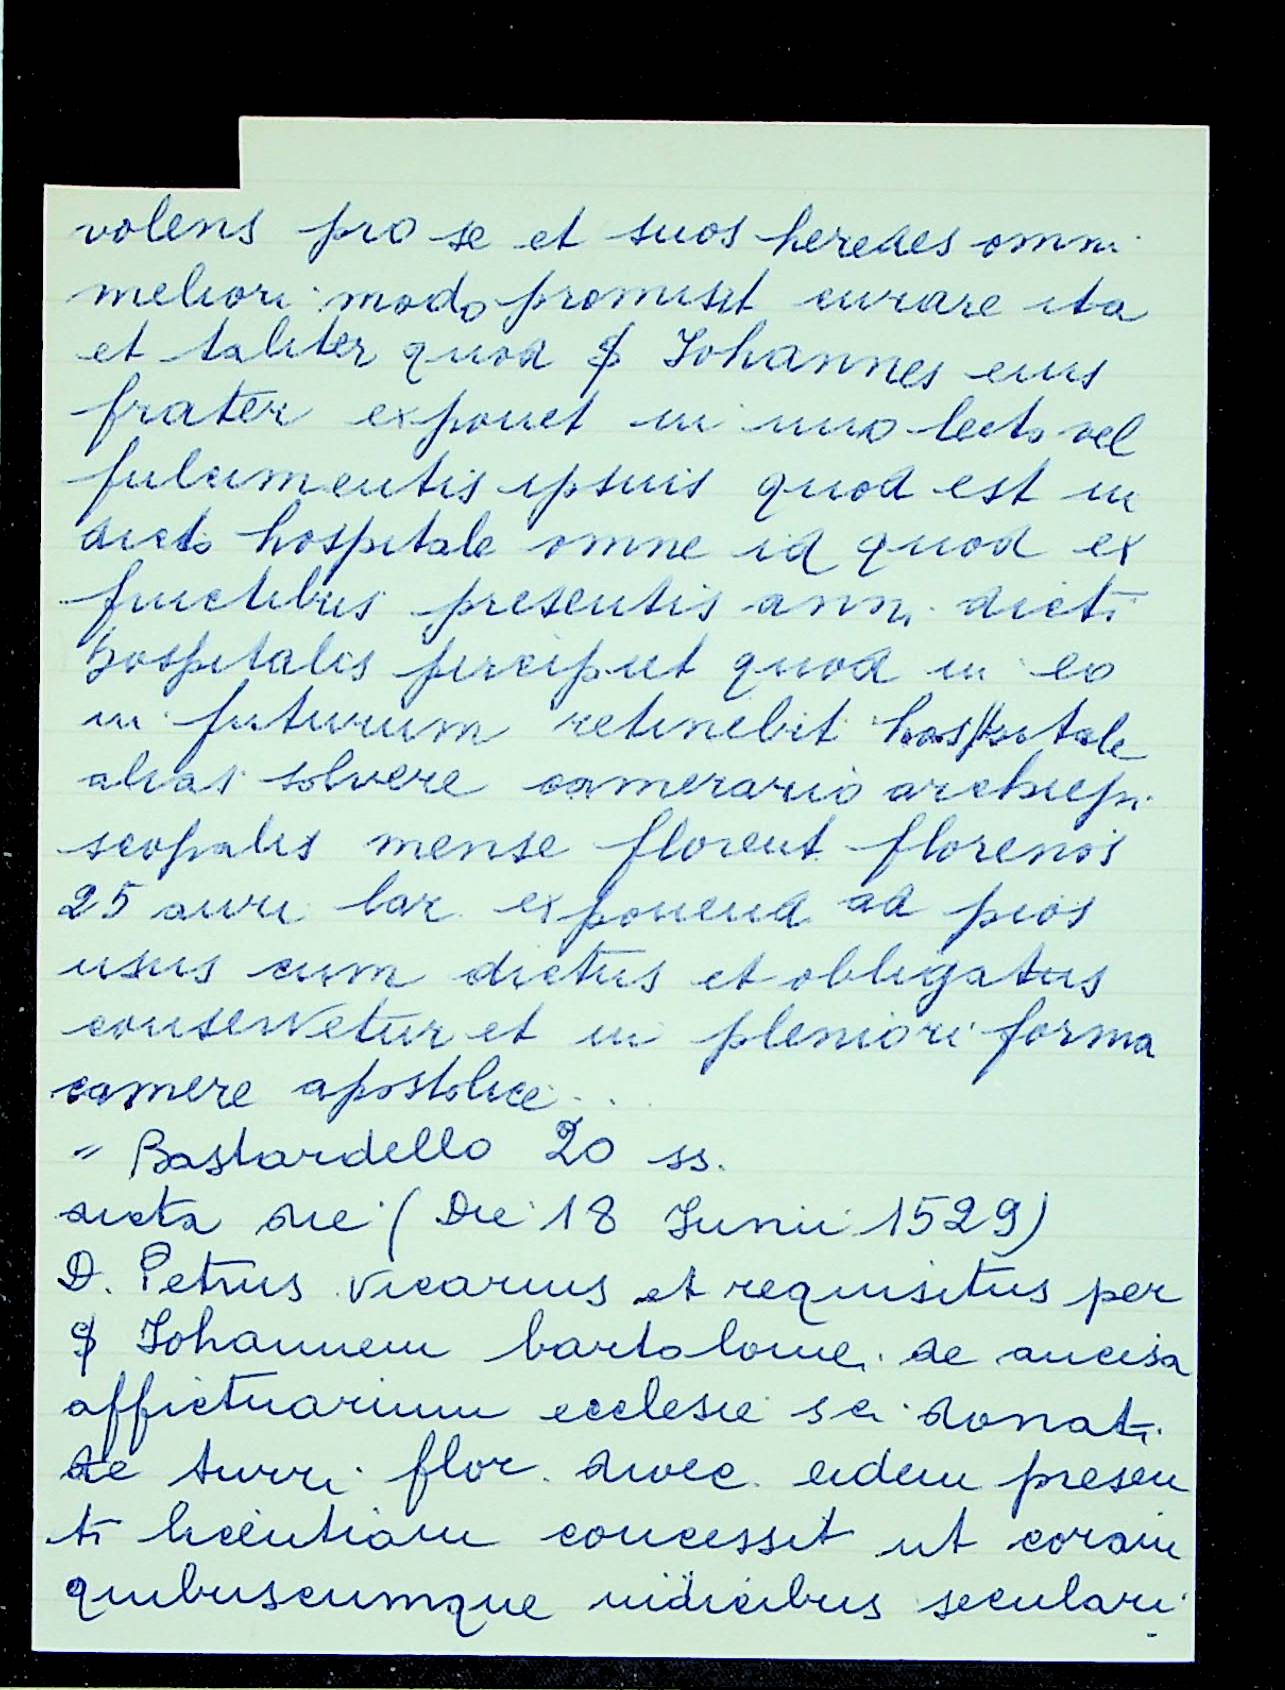 volens pro se et suos heredes omni
meliori modo promisit curare ita
et taliter quod $ Johannes eius
frater exponet in uno lecto vel
fulcimentis ipsius quod est in
dicto hospitale omne id quod ex
fructibus presentis anni dicti
hospitalis percipiet quod in eo
in futurum retinebit hospitale
alias solvere camerario archiepi
scopalis mense florent. florenos
25 auri lar. exponend. ad pios
usus cum dictus et obligatus
conservetur et in pleniori forma
camere apostolice...
" Bastardello 20 ss.
dicta die (Die 18 Junii 1529)
D. Petrus vicarius et requisitus per
$ Johannem bartolomei de ancisa
affictuarium ecclesie sci donati
de turri flor. dioec. eidem presen
ti licentiam concessit ut coram
quibuscumque iudicibus seculari